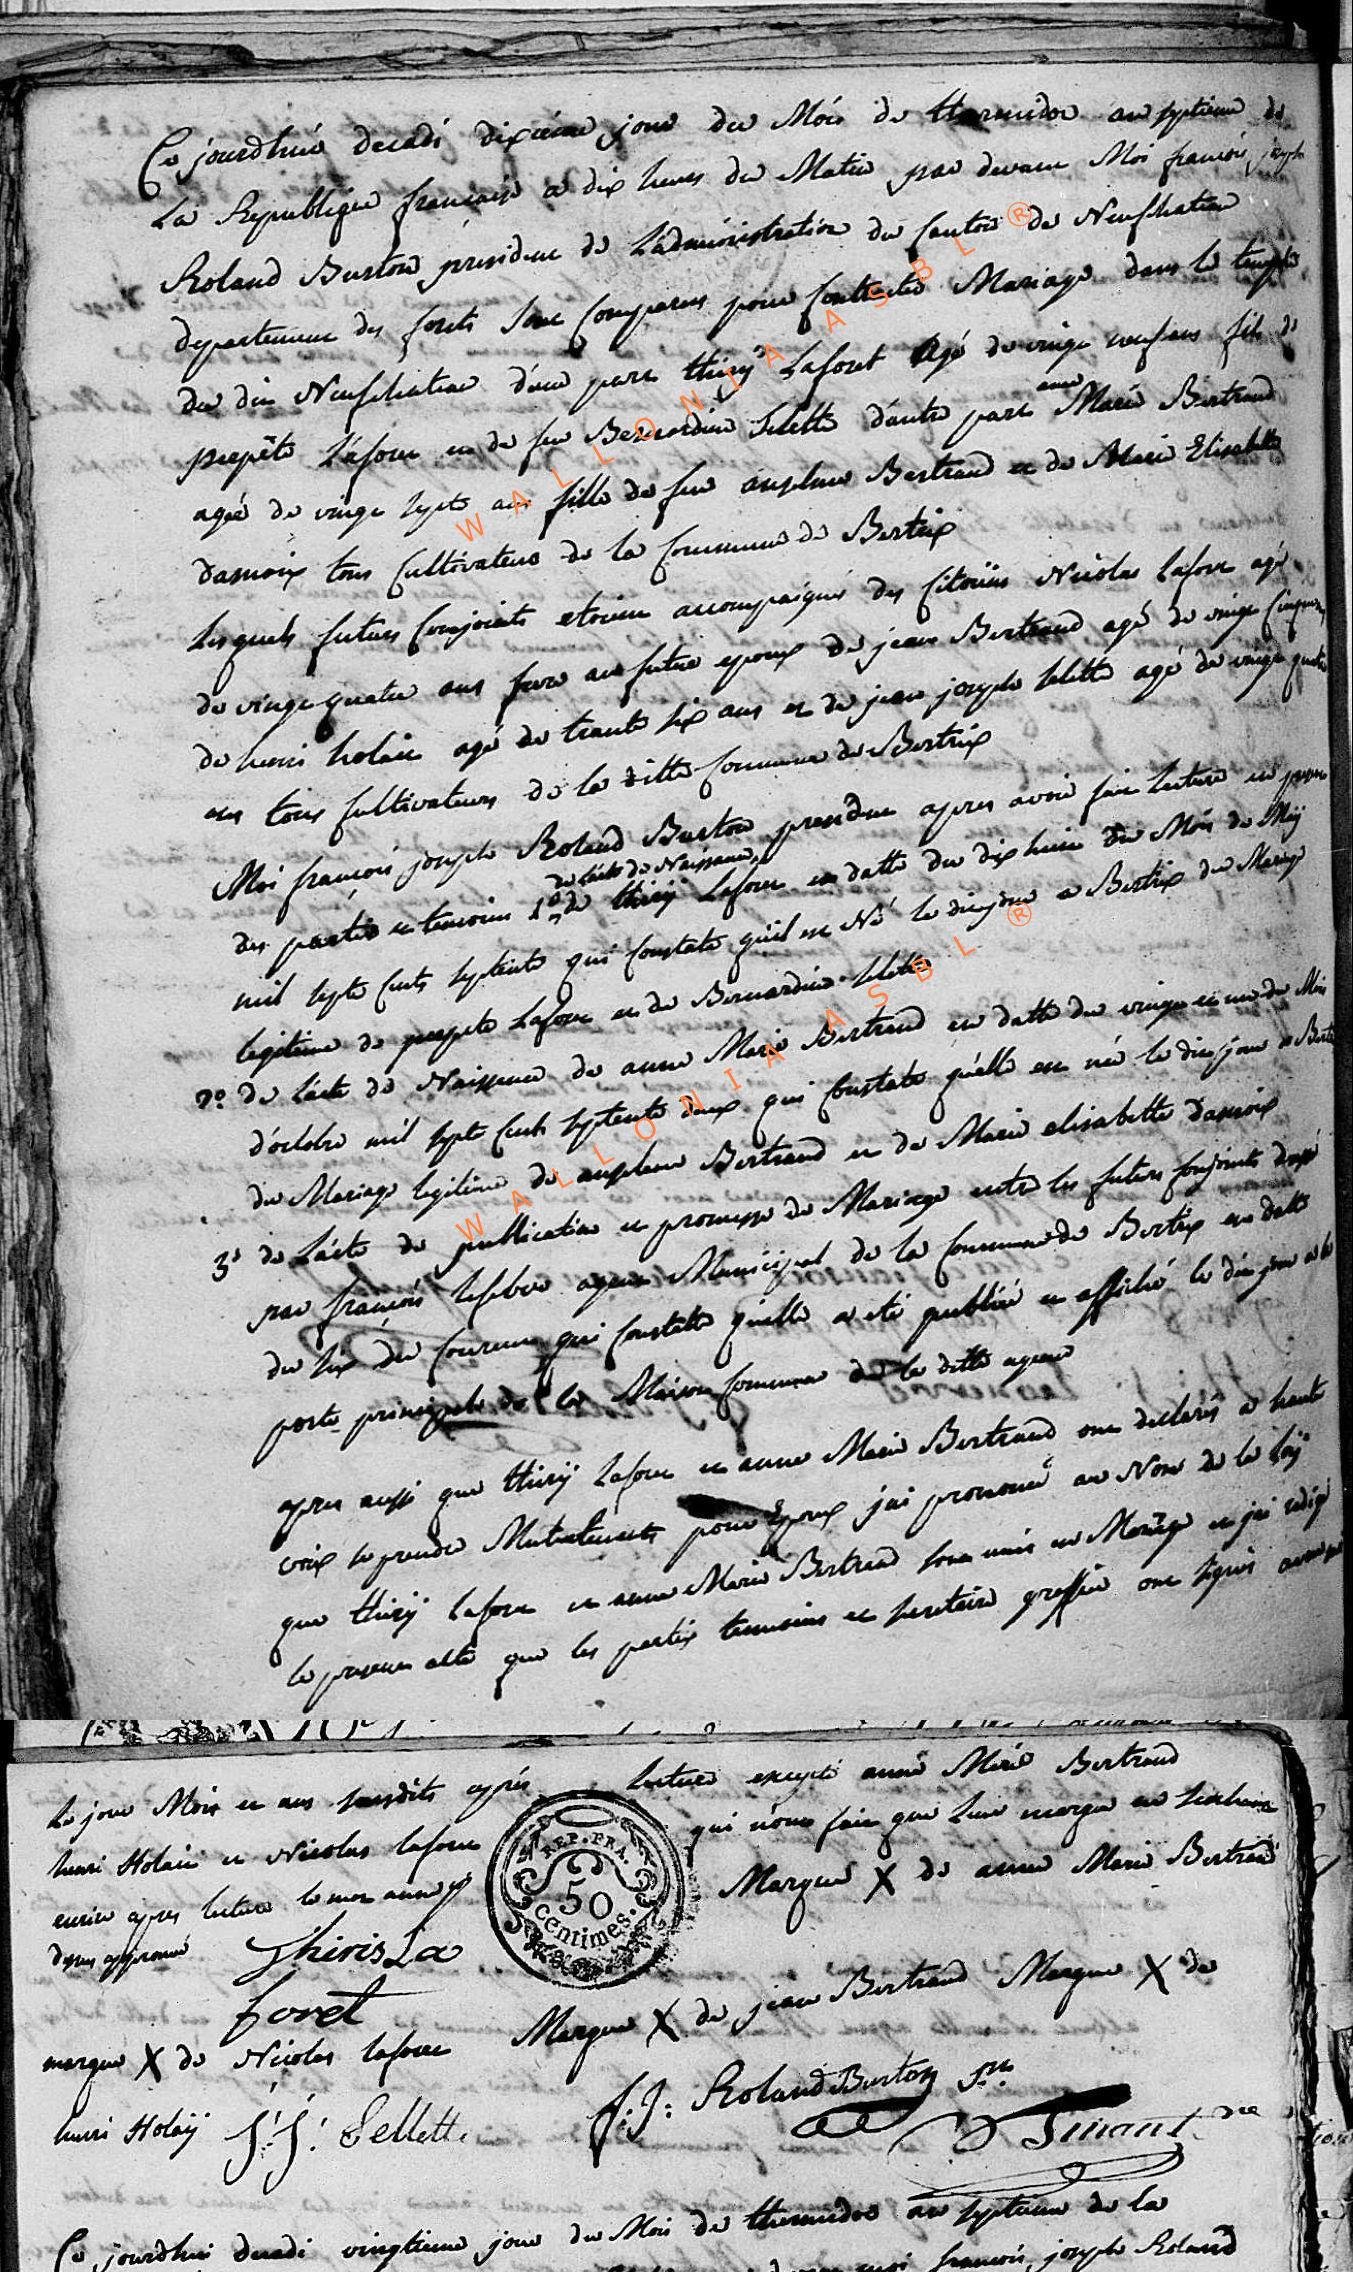 Ce jourdhuÿ decadi dixiéme jour du Mois de thermidor an septieme de
La Republique francaise a dix heures du Matin par devant Moi francois joseph
Roland Burton président de L'administration du Canton de Neufchateau
departement des forets sont comparus pour Contracter Mariage dans le temple
du dit Neufchateau d'une part thirÿ Laforet Agé de vingt neuf ans fils de
Laforet et de feu Bernardine Selette d'autre part anne Marie Bertrand
agée de vingt septe ans fille de feu anselme Bertrand et de Marie Elisabette
Damoix tous Cultivateurs de la Commune de Bertrix
Lesquels futurs Conjoints etoient accompagnés des Citoiens Nicolas Laforet agé
de vingt quatre ans frere au futur epoux de jean Bertrand agé de vingt cinq ans
de henri holaii agé de trente six ans et de jean joseph Selette agé de vingt quatre
ans tous Cultivateurs de la ditte Commune de Bertrix
Moi francois joseph Roland Burton president apres avoir fait lecture en presence
des parties et temoins 1° de l'acte de Naissance de thirÿ Laforet en datte du dix huit du Mois de Maÿ
mil septe Cents septente qui Constate qu'il est Né le dit jour a Bertrix du Mariage
legitime de Laforet et de Bernardine Selette
2° de L'acte de Naissance de anne Marie Bertrand en datte du vingt et un du Mois
d'octobre mil septe Cents septente deux qui Constate qu'elle est née le dit jour a Bertrix
du Mariage legitime de anselme Bertrand et de Marie elisabette Damoix
3° de L'acte de publication et promesse de Mariage entre les futurs Conjoints dressé
par francois Lefebvre agent Municipal de la Commune de Bertrix en datte
du six du Courant qui Constatte quelle a eté publiée et affichée le dit jour a la
porte principale de la Maison Commune de la ditte agence
apres aussi que thirÿ Laforet et anne Marie Bertrand ont declarés a haute
voix se prendre Mutuelement pour Epoux j'ai prononcé au Nom de la Loÿ
que thirÿ Laforet et anne Marie Bertrand sont unis en Mariage et j'ai redigé
le present acte que les parties temoins et secretaire greffier ont signés avec moi
Le jour Mois et ans susdits après lecture excepté anne Marie Bertrand
henri Holaii et Nicolas Laforet qui n'ont fait que leur marque ne sachant
ecrire apres lecture le mot anne
dessus approuvé
REP. FRA.
50
centimes.
Marque X de anne Marie Bertrand
Thiris La
foret
Marque X de jean Bertrand Marque X de
marque X de Nicolas Laforet
henri Holaÿ J: J: Sellette
f: J: Roland Burton
Ce jourdhui decadi vingtieme jour du Mois de thermidor an septieme de la
moi francois joseph Roland